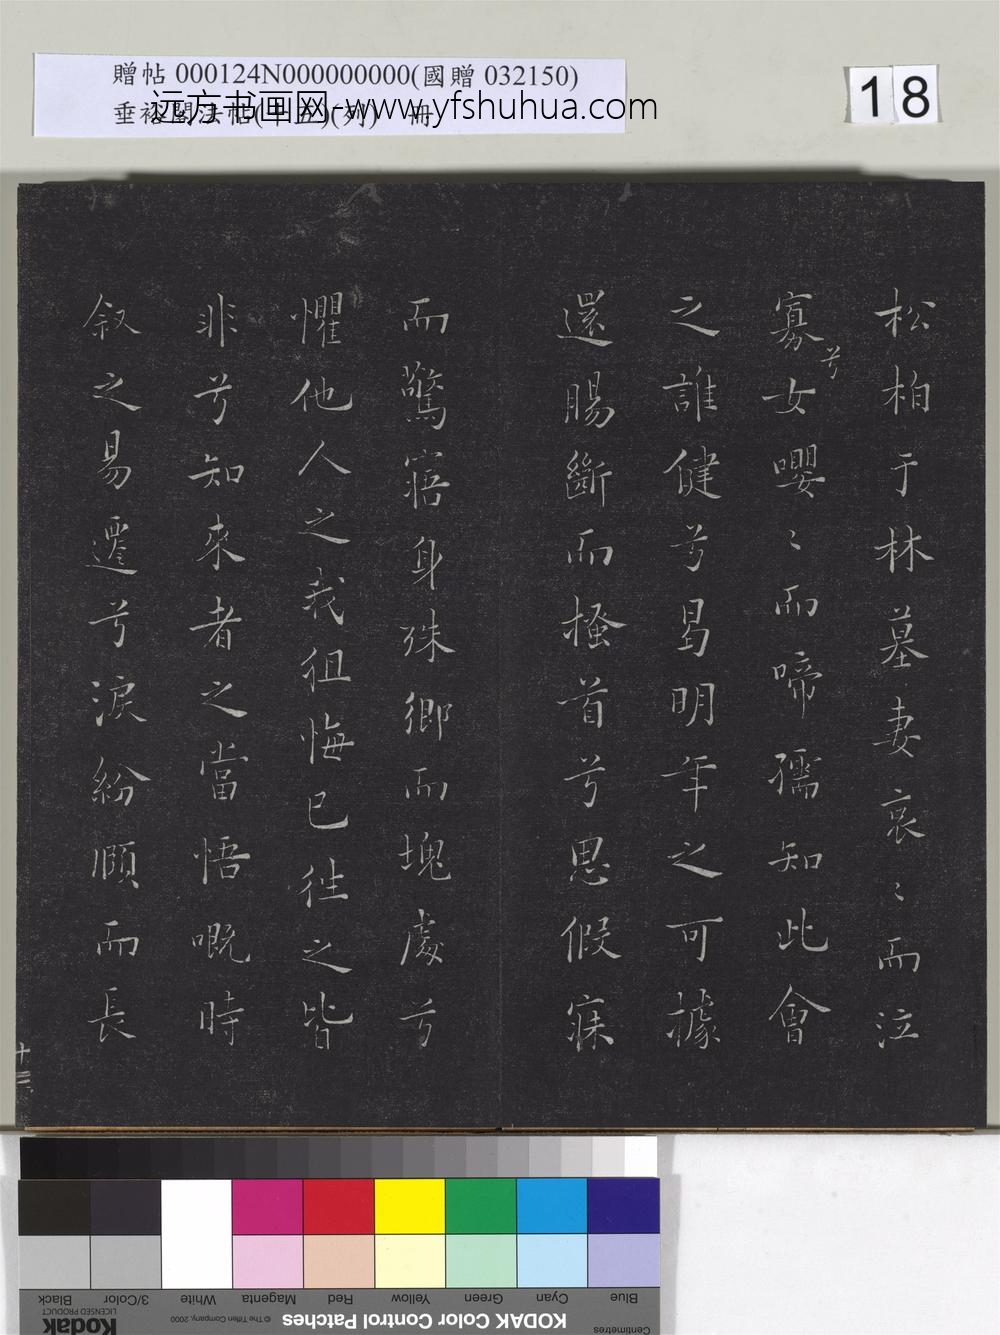 贈帖 000124N000000000(國贈 032150)
垂裕閣法帖(十五)(列) 冊
远方书画网-www.yfshuhua.com
18
松柏于林墓妻哀〻而泣
寡兮女嚶〻而啼孺知此會
之誰健兮曷明年之可據
還腸斷而搔首兮思假寐
而驚寤身殊鄉而塊處兮
懼他人之我徂悔已往之皆
非兮知來者之當悟嘅時
叙之易遷兮淚紛顧而長
十三
Blue
Cyan
Green
Yellow
Red
Magenta
White
3/Color
Black
Centimetres
KODAK Color Control Patches
© The Tiffen Company, 2000
Kodak
LICENSED PRODUCT